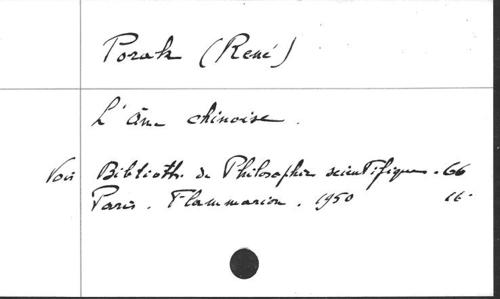 Porak (René)
L'âme chinoise.
Voir Biblioth. de Philosophie scientifique. 66
Paris. Flammarion. 1950 16.